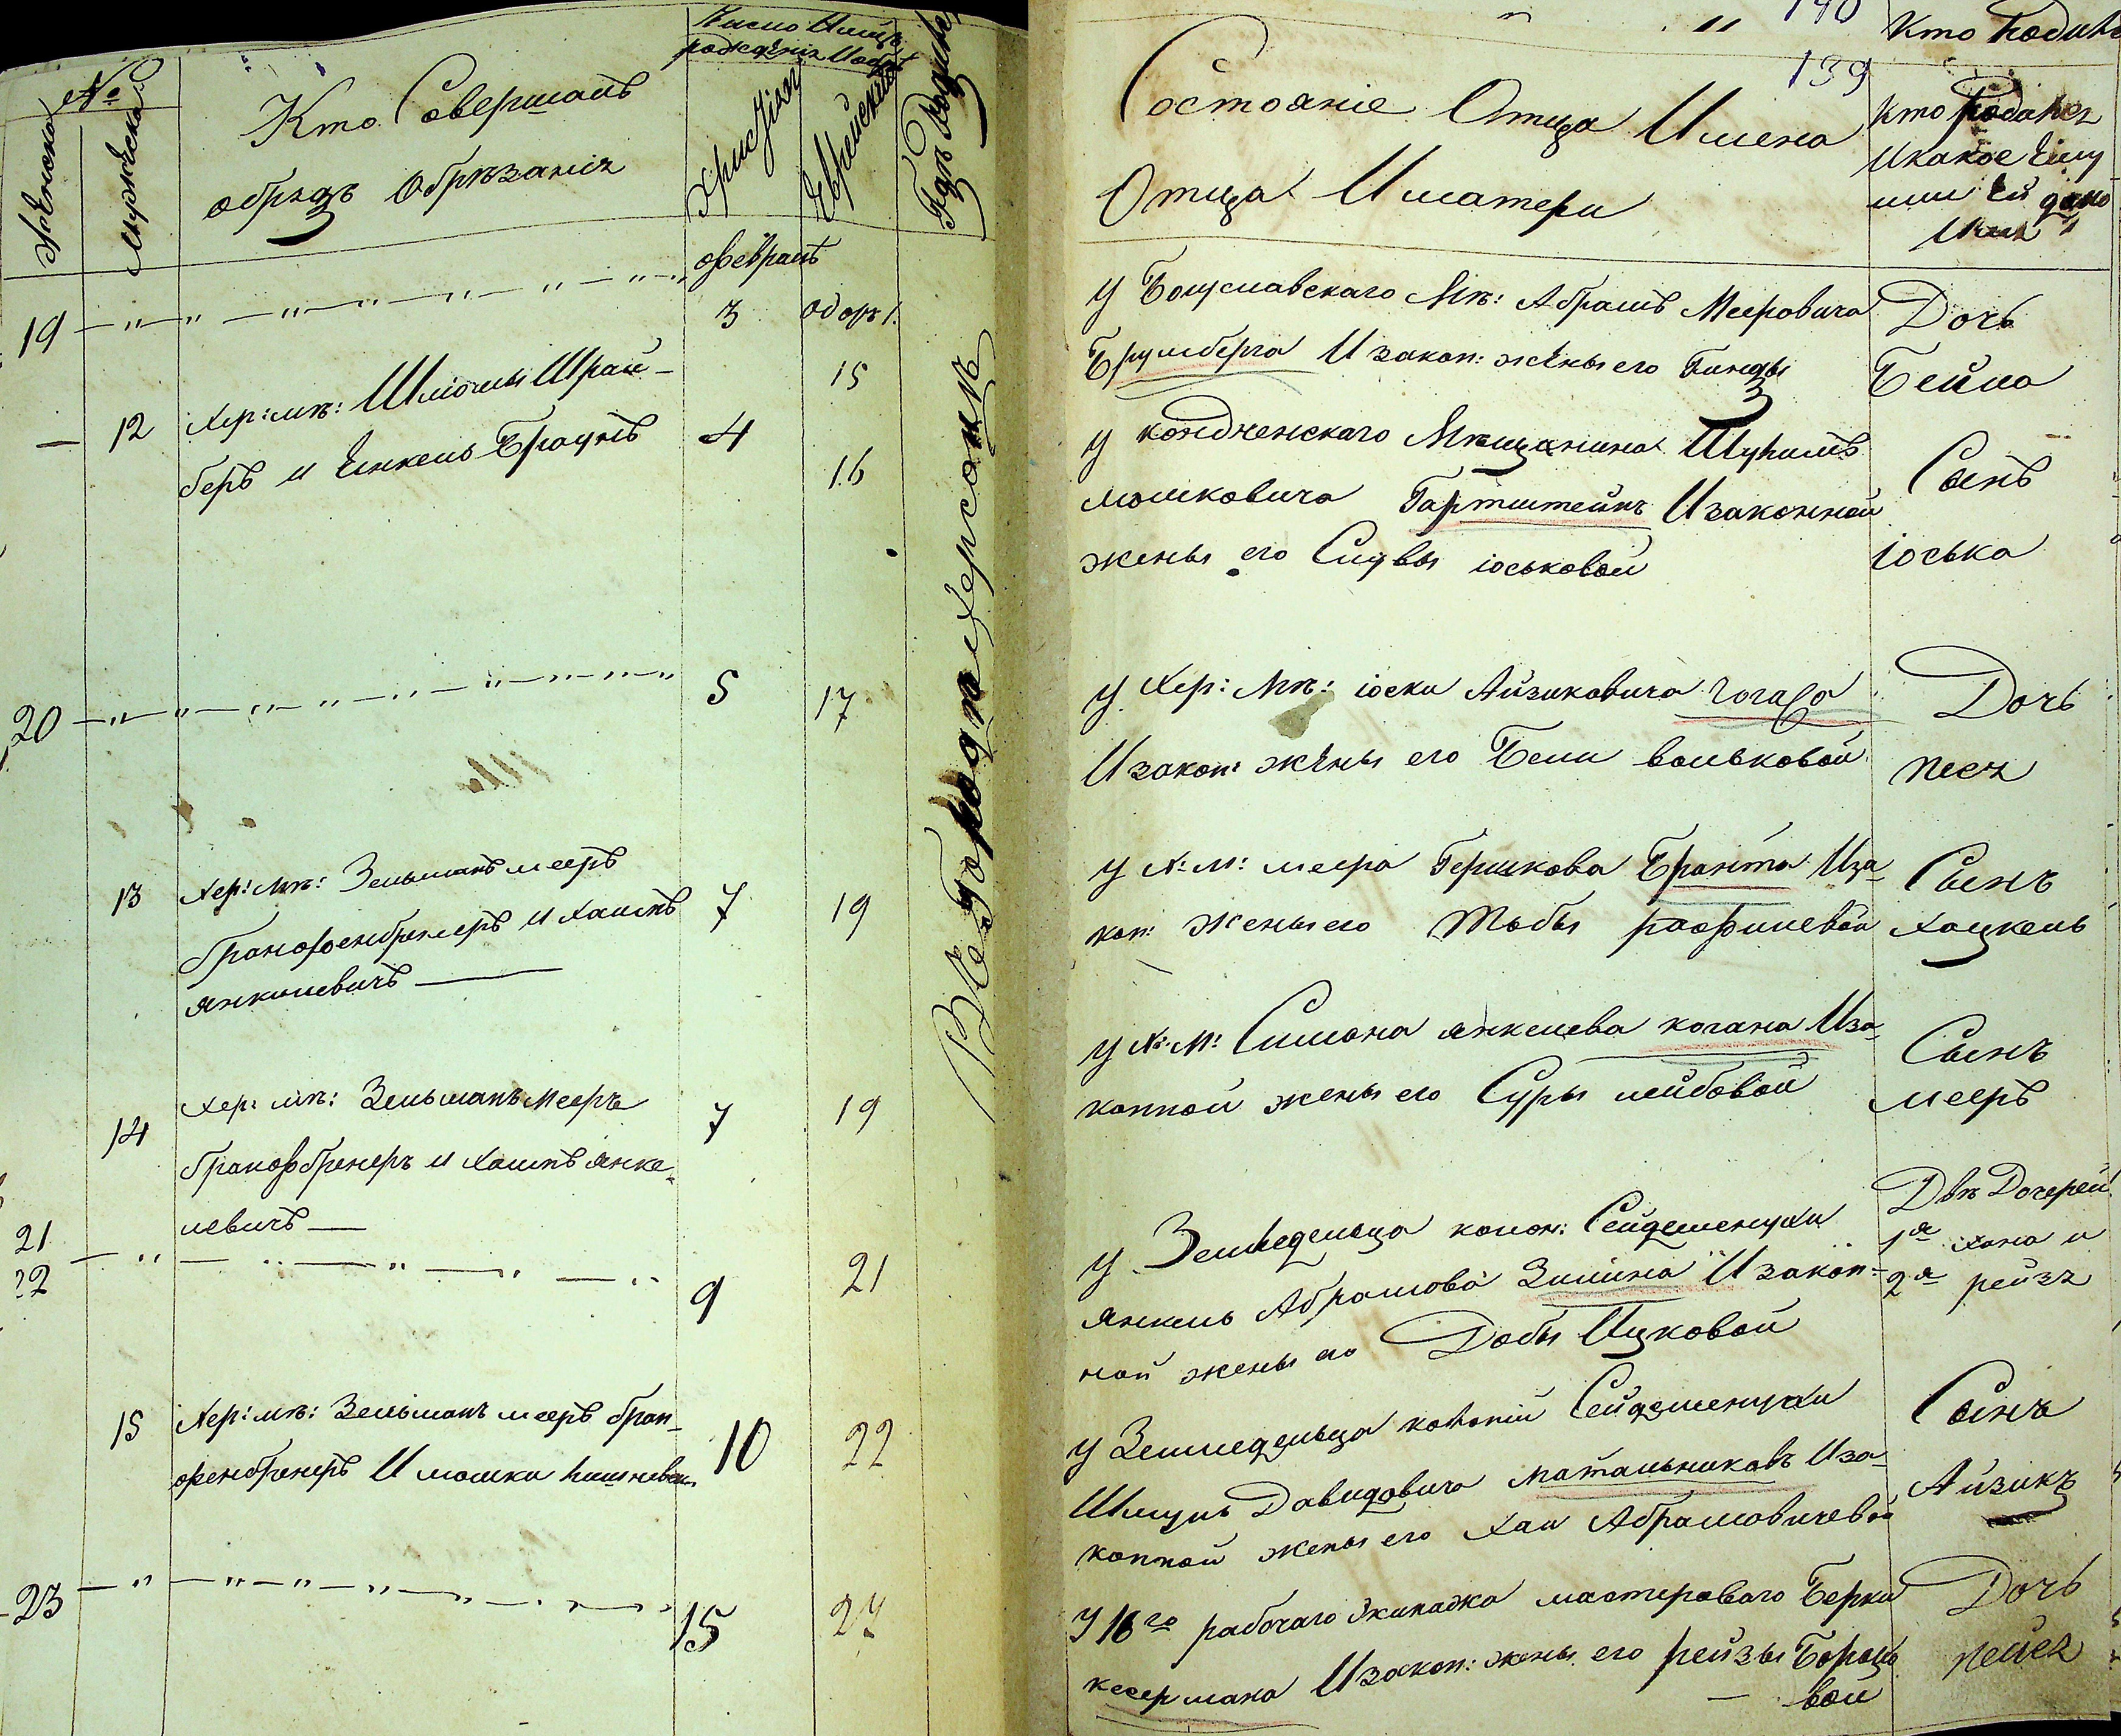 №
Женска
Мужеска
Кто Совершалъ
обрядъ обрѣзанія
Число и мцъ
рожденія и обрѣ
Христіан
Еврейский
Гдѣ Родился
февраль
19
3
Адаръ 1.
15
12 Хер: мѣ: Шліомы Шрай-
беръ и Янкель Браунъ
4
16
20
5
17
13 Хер: мѣ: Зельманъ мееръ
Гранофенбренеръ и Хаимъ
янкилевичъ
7
19
14 Хер: мѣ: Зельманъ Мееръ
Гранофбренеръ и Хаимъ янке-
левичъ
7
19
21
22
9
21
15 Хер: мѣ: Зельманъ мееръ гран-
офенбренеръ И мошки
10
22
23
15
27
ВЪ Городѣ Херсонѣ
140
Кто Родил
139
Состояніе Отца Имена
Отца И матери
Кто Родился
И какое Ему
или Ей дано
Имя
У Богуславскаго Мѣ: Абрамъ Мееровича
Брумберга И закон: жены его Гинды
Дочь
Бейла
У Мѣщанина
мошковича Гартштейнъ И законной
жены его Сливы іоськовой
Сынъ
іоська
У Хер: Мѣ: іоски Айзиковича
И закон: жены его Бели вольковой
Дочь
песя
У Х: М: меера Гершкова Бранта Иза-
кон: жены его Тобы рафилевой
Сынъ
Хацкель
У Х: М: Симона янкелева когана Иза-
конной жены его Суры лейбовой
Сынъ
мееръ
У Земледельца колон: Сейдеменухи
янкель Абрамова Зимина И закон-
ной жены его Добы Ицковой
Двѣ Дочерей
1я хана и
2я рейзя
У Земледельца колоніи Сейдеменухи
Шмуль Давидовича матальниковъ Иза-
конной жены его Хаи Абрамовичевой
Сынъ
Айзикъ
У 16го рабочаго Экипажа мастероваго Берки
кесермана И закон: жены его рейзы
вой
Дочь